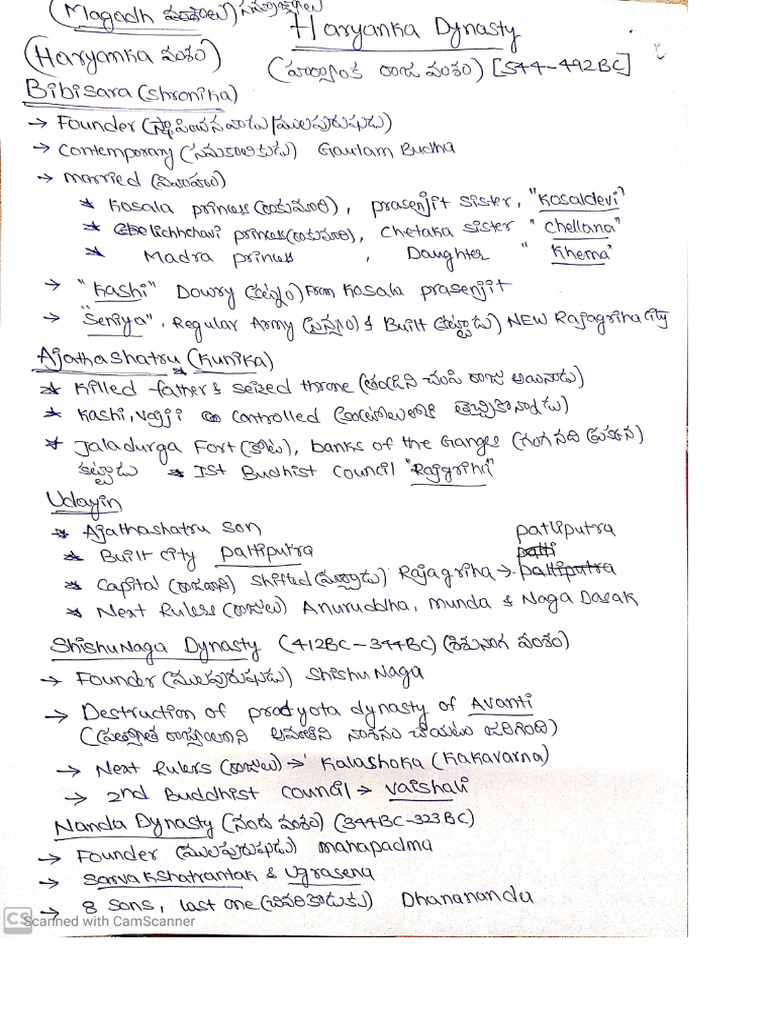 (Magadh
Haryanka Dynasty
(Haryanka వంశం)
(హర్యాంక రాజ వంశం) [544-492BC]
Bibisara (Shronika)
→ Founder (స్థాపించినవాడు/మూలపురుషుడు)
→ Contemporary (సమకాలికుడు) Gautam Budha
→ married (వివాహం)
* Kosala princess (రాకుమారి), prasenjit sister, "Kosaldevi"
* lichhchavi princess (రాకుమారి), Chetaka sister "Chellana"
* Madra princess, Daughter "Khema"
→ "Kashi" Dowry (కట్నం) From Kosala prasenjit
→ "Seniya", Regular Army (సైన్యం) & Built (కట్టాడు) NEW Rajagriha City
Ajathashatru (Kunika)
* Killed father & seized throne (తండ్రిని చంపి రాజు అయినాడు)
* Kashi, Vajji Controlled
* Jaladurga Fort (కోట), banks of the Ganges (గంగ నది ప్రక్కన)
కట్టాడు * Ist Budhist Council "Rajgriha"
Udayin
* Ajathashatru son
patliputra
* Built city patliputra
patli
* Capital (రాజధాని) Shifted (మార్చాడు) Rajagriha → patliputra
* Next Rulers (రాజులు) Anuruddha, munda & Naga Dasak
ShishuNaga Dynasty (412BC-344BC) (శిశునాగ వంశం)
→ Founder (మూలపురుషుడు) Shishu Naga
→ Destruction of pradyota dynasty of Avanti
నాశనం చేయటం జరిగింది)
→ Next Rulers (రాజులు) → Kalashoka (Kakavarna)
→ 2nd Buddhist council → Vaishali
Nanda Dynasty (నంద వంశం) (344BC-323BC)
→ Founder (మూలపురుషుడు) mahapadma
→ Sarvakshatrantak & Ugrasena
→ 8 Sons, last one (చివరి కొడుకు) Dhanananda
CS Scanned with CamScanner